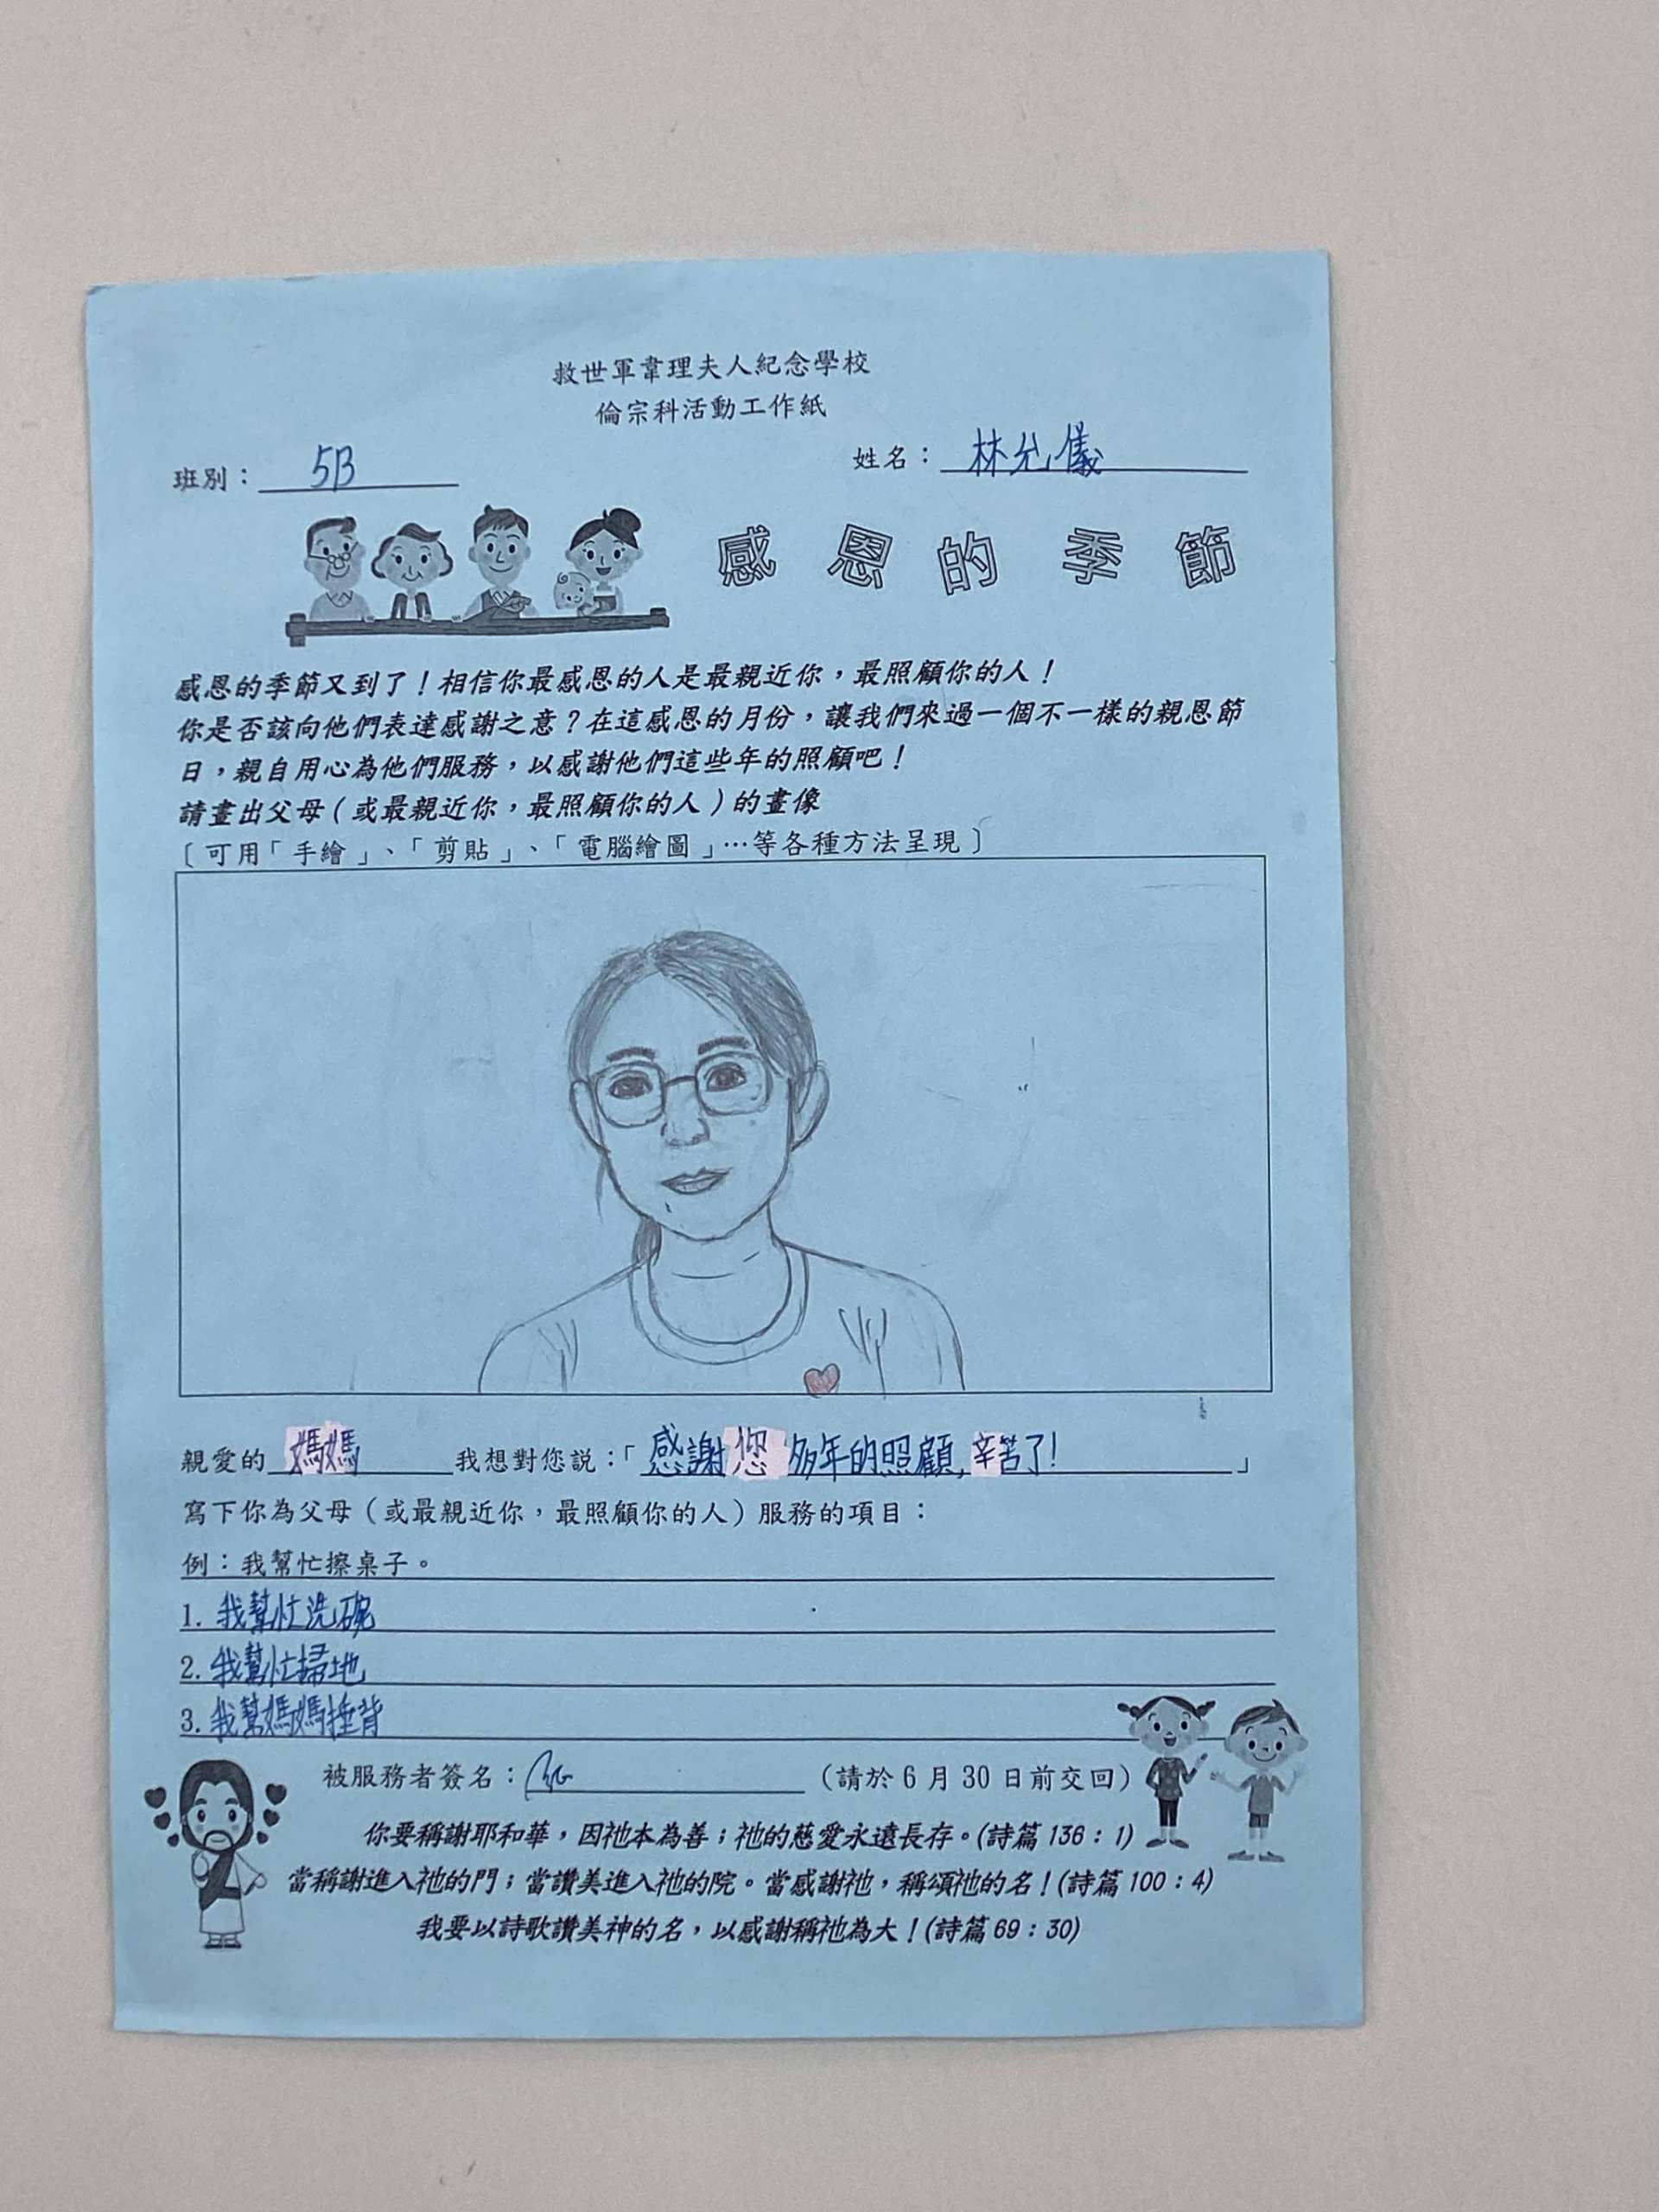 救世軍韋理夫人紀念學校
倫宗科活動工作紙
班別：5B 姓名：林允儀
感恩的季節
感恩的季節又到了！相信你最感恩的人是最親近你，最照顧你的人！
你是否該向他們表達感謝之意？在這感恩的月份，讓我們來過一個不一樣的親恩節
日，親自用心為他們服務，以感謝他們這些年的照顧吧！
請畫出父母（或最親近你，最照顧你的人）的畫像
〔可用「手繪」、「剪貼」、「電腦繪圖」…等各種方法呈現〕
親愛的媽媽 我想對您說：「感謝您多年的照顧,辛苦了！」
寫下你為父母（或最親近你，最照顧你的人）服務的項目：
例：我幫忙擦桌子。
1. 我幫忙洗碗
2. 我幫忙掃地
3. 我幫媽媽捶背
被服務者簽名： （請於 6 月 30 日前交回）
你要稱謝耶和華，因祂本為善；祂的慈愛永遠長存。(詩篇 136：1)
當稱謝進入祂的門；當讚美進入祂的院。當感謝祂，稱頌祂的名！(詩篇 100：4)
我要以詩歌讚美神的名，以感謝稱祂為大！(詩篇 69：30)